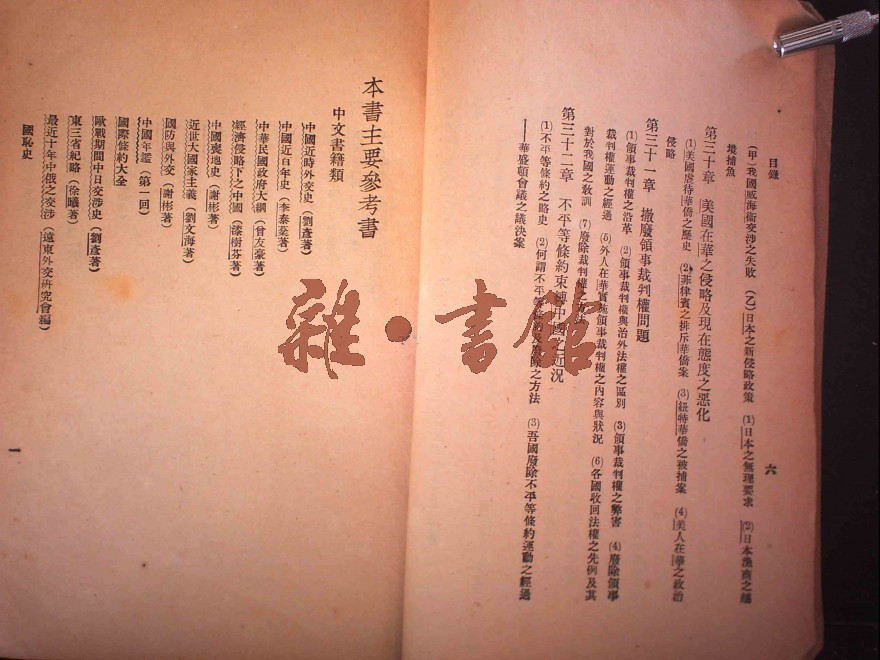 目錄
六
(甲)我國威海衛交涉之失敗 (乙)日本之新侵略政策 (1)日本之無理要求 (2)日本漁商之越
境捕魚
第三十章 美國在華之侵略及現在態度之惡化
(1)美國虐待華僑之歷史 (2)菲律賓之排斥華僑案 (3)紐特華僑之被捕案 (4)美人在華之政治
侵略
第三十一章 撤廢領事裁判權問題
(1)領事裁判權之沿革 (2)領事裁判權與治外法權之區別 (3)領事裁判權之弊害 (4)廢除領事
裁判權運動之經過 (5)外人在華實施領事裁判權之內容與狀況 (6)各國收回法權之先例及其
對於我國之教訓 (7)廢除裁判權之方法
第三十二章 不平等條約束縛中國之近況
(1)不平等條約之略史 (2)何謂不平等條約及廢除之方法 (3)吾國廢除不平等條約運動之經過
——華盛頓會議之議決案
本書主要參考書
中文書籍類
中國近時外交史(劉彥著)
中國近百年史(李泰棻著)
中華民國政府大綱(曾友豪著)
經濟侵略下之中國(漆樹芬著)
中國喪地史(謝彬著)
近世大國家主義(劉文海著)
國防與外交(謝彬著)
中國年鑑(第一回)
國際條約大全
歐戰期間中日交涉史(劉彥著)
東三省紀略(徐曦著)
最近十年中俄之交涉(遠東外交研究會編)
國恥史
一
雜·書館